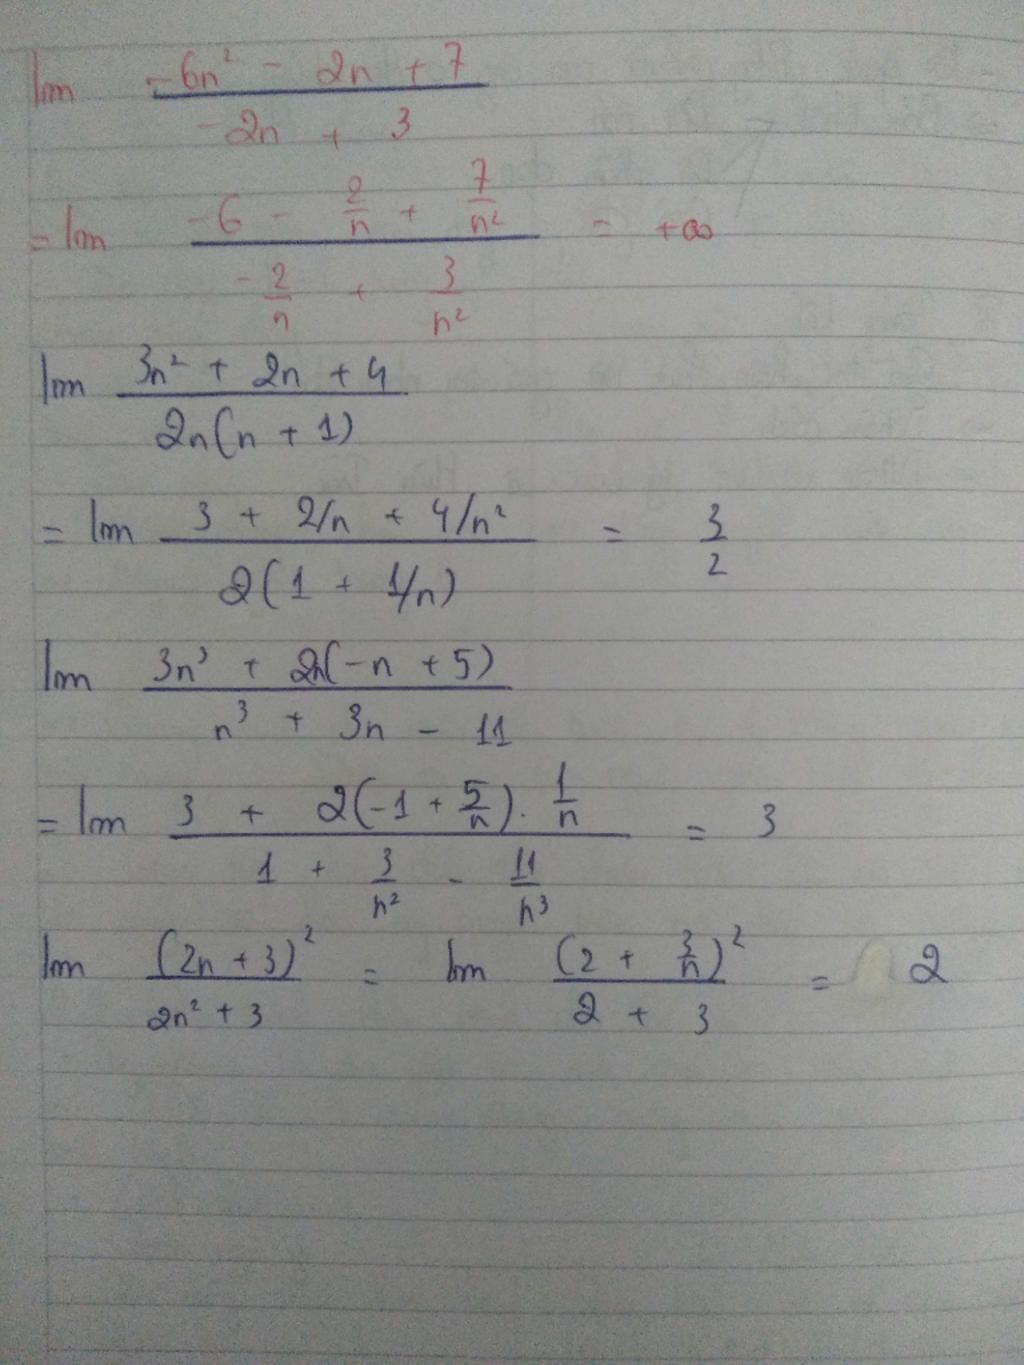 lim (-6n² - 2n + 7)/(-2n + 3)
= lim (-6 - 2/n + 7/n²)/(-2/n + 3/n²) = +∞
lim (3n² + 2n + 4)/(2n(n + 1))
= lim (3 + 2/n + 4/n²)/(2(1 + 1/n)) = 3/2
lim (3n³ + 2n(-n + 5))/(n³ + 3n - 11)
= lim (3 + 2(-1 + 5/n) . 1/n)/(1 + 3/n² - 11/n³) = 3
lim (2n + 3)²/(2n² + 3) = lim (2 + 3/n)²/(2 + 3) = 2